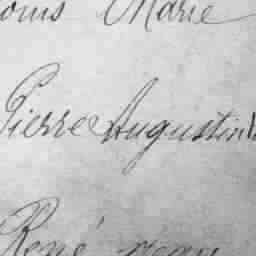 ouis Marie
Pierre Augustin
René Jean